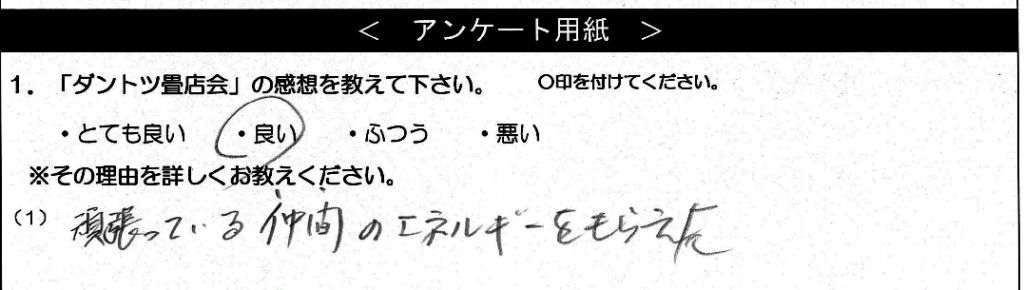 ＜ アンケート用紙 ＞
1．「ダントツ畳店会」の感想を教えて下さい。 〇印を付けてください。
・とても良い ・良い ・ふつう ・悪い
※その理由を詳しくお教えください。
（1） 頑張っている仲間のエネルギーをもらえた